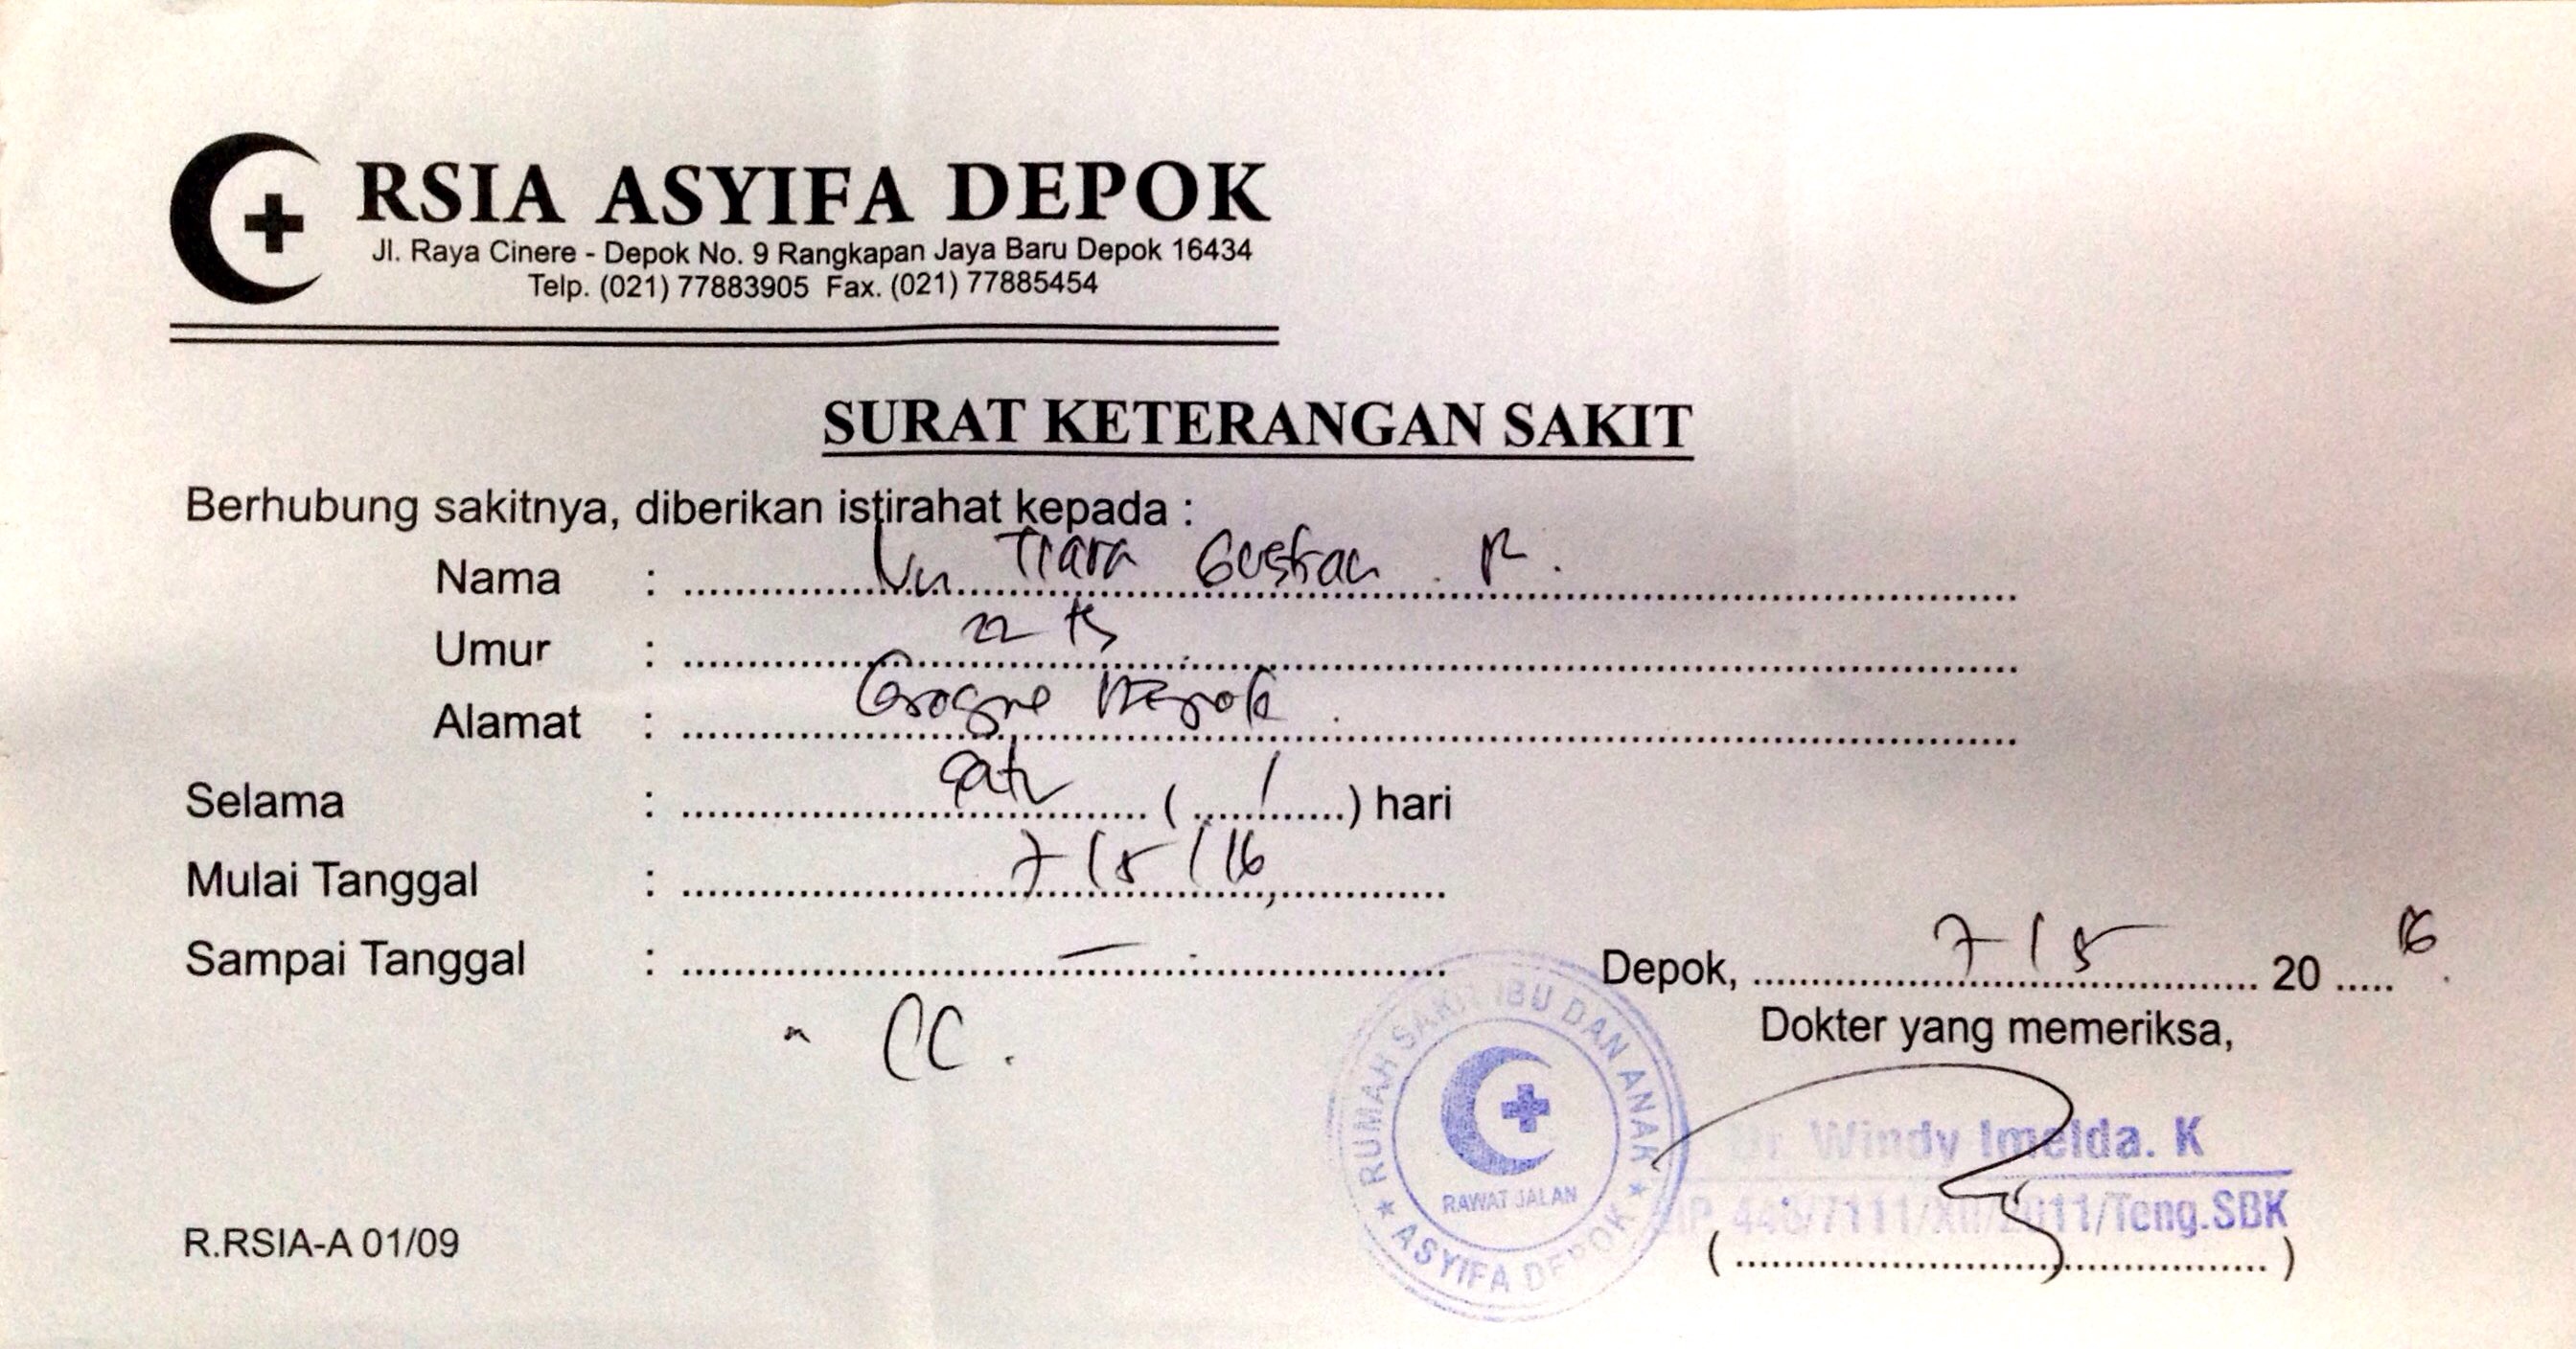 RSIA ASYIFA DEPOK
Jl. Raya Cinere - Depok No. 9 Rangkapan Jaya Baru Depok 16434
Telp. (021) 77883905 Fax. (021) 77885454
SURAT KETERANGAN SAKIT
Berhubung sakitnya, diberikan istirahat kepada :
Nama : Nn Tiara R.
Umur : 22 th
Alamat : Depok
Selama : satu ( 1 ) hari
Mulai Tanggal : 7/5/16
Sampai Tanggal : —
Depok, 7/5 20 16
CC.
Dokter yang memeriksa,
RUMAH SAKIT IBU DAN ANAK
RAWAT JALAN
ASYIFA DEPOK
Dr Windy Imelda. K
/Teng.SBK
R.RSIA-A 01/09